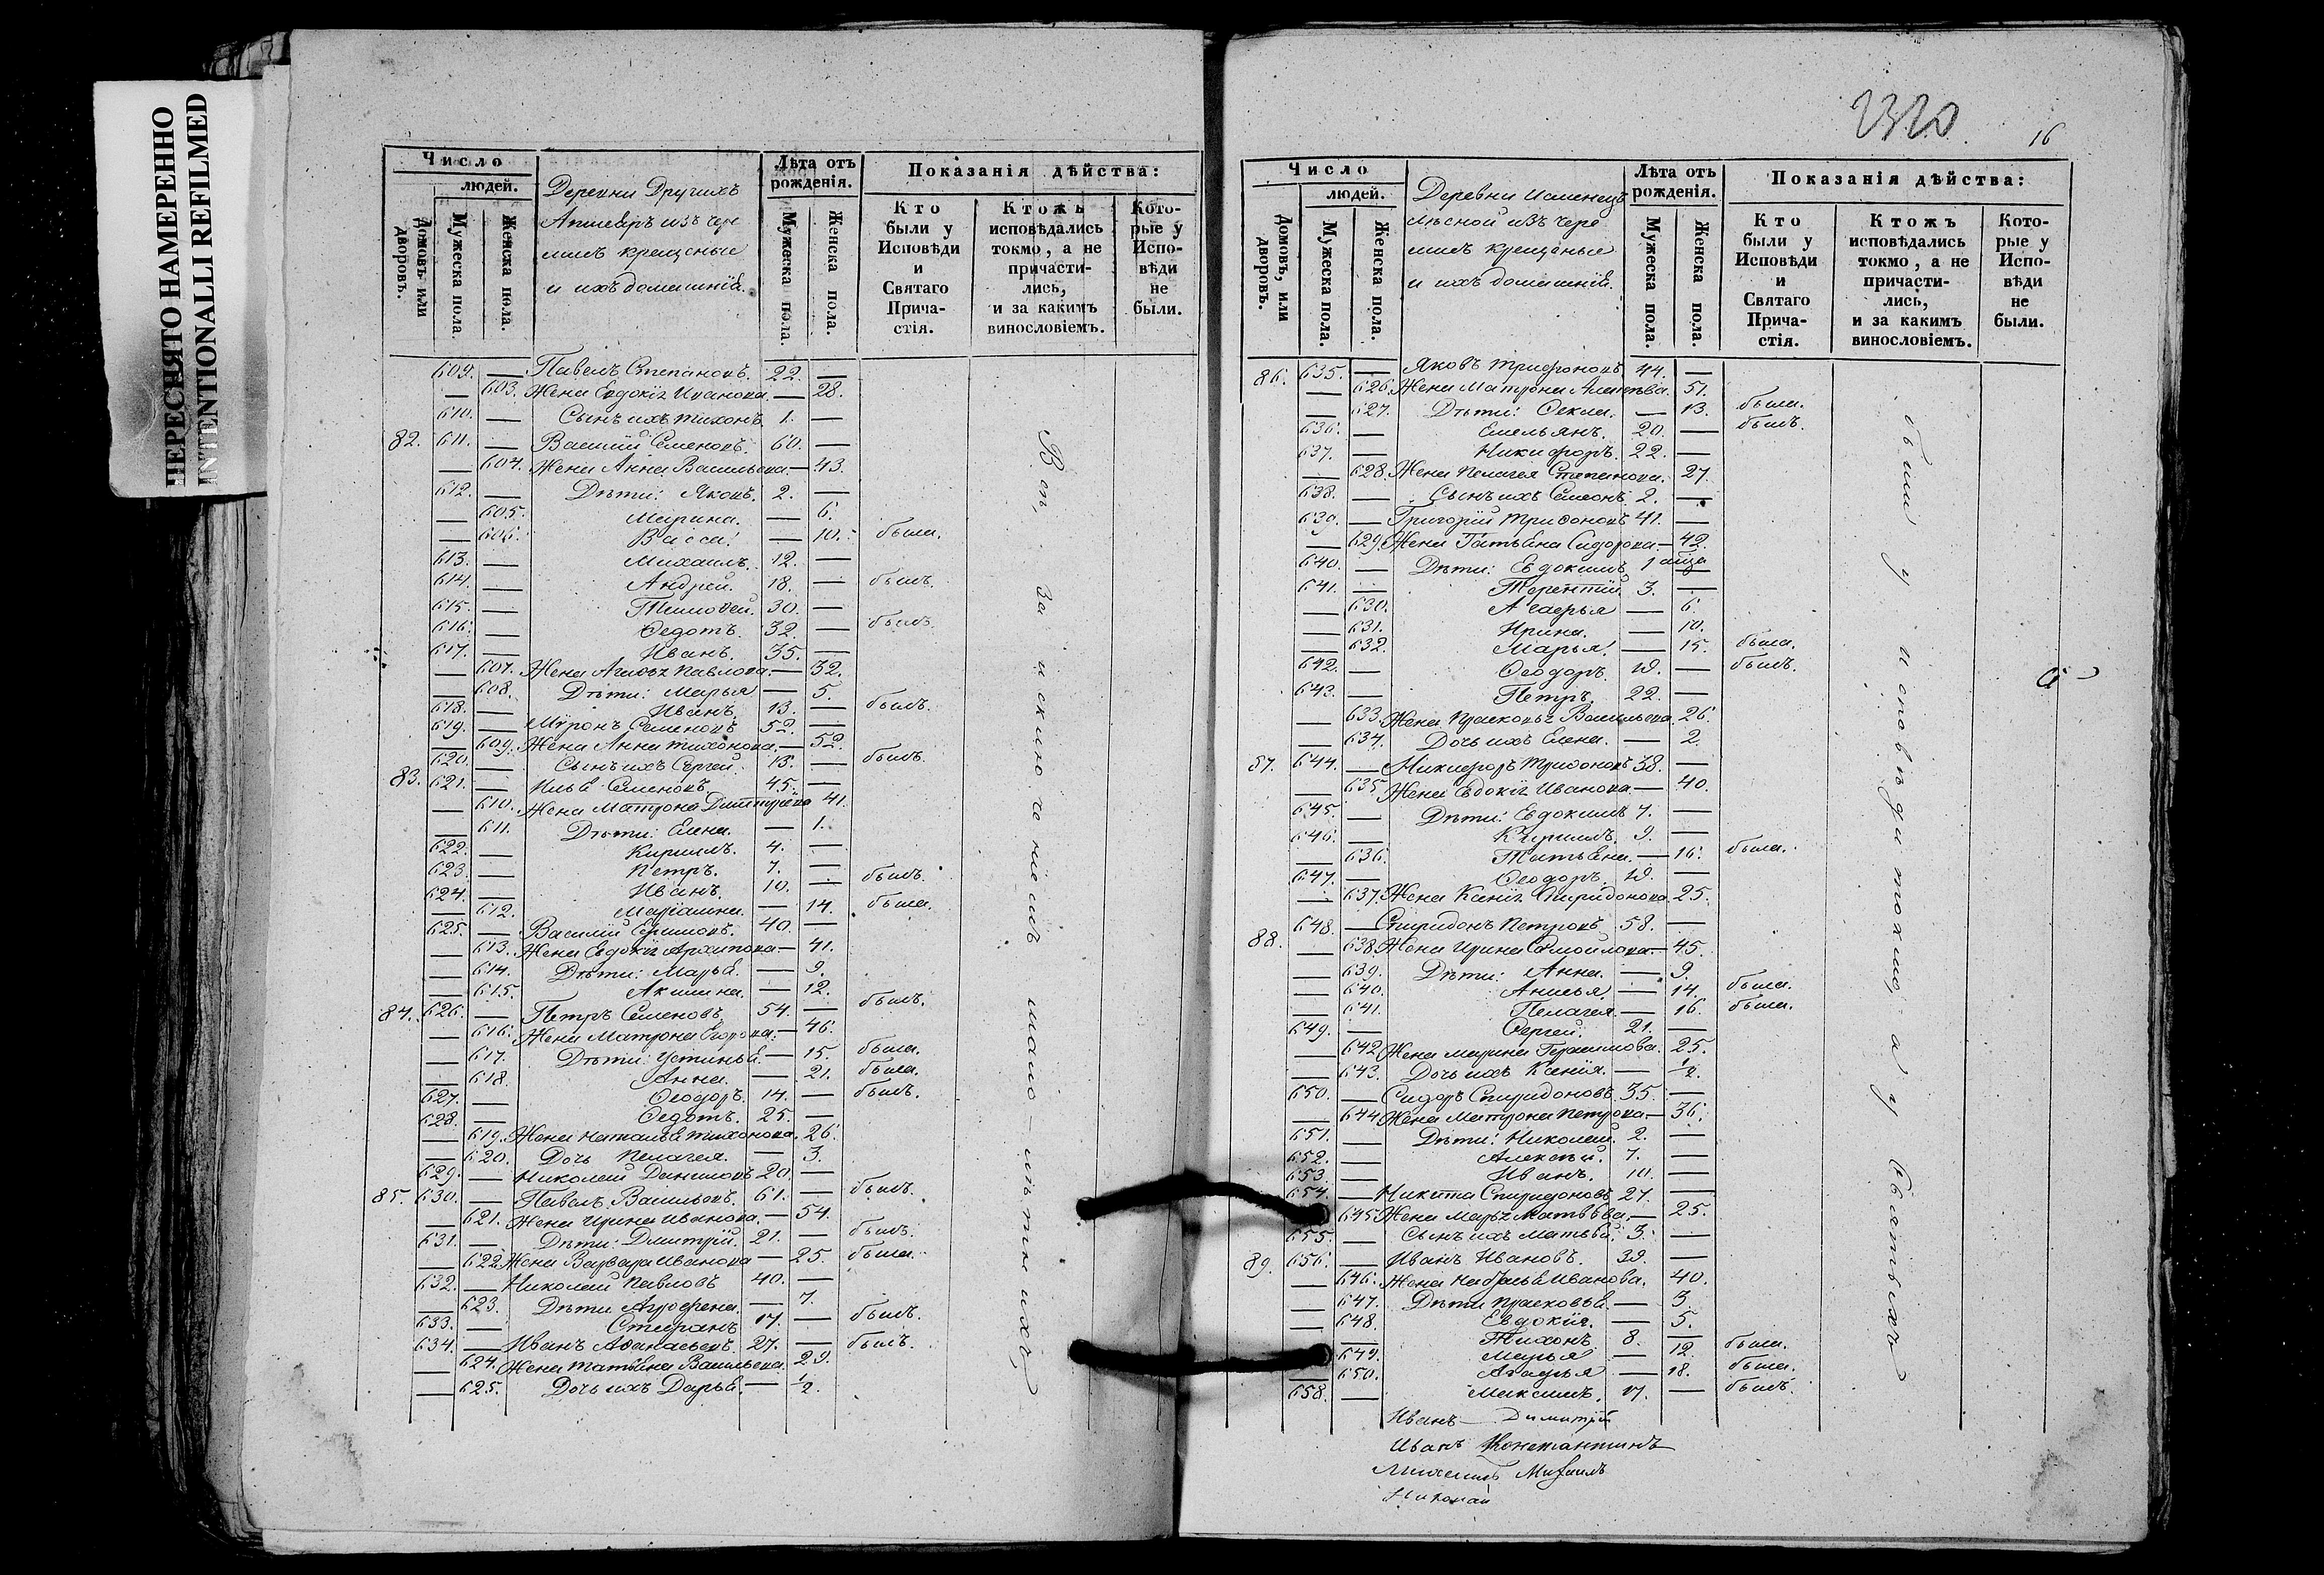 ПЕРЕСНЯТО НАМЕРЕННО
INTENTIONALLI REFILMED
Число
людей.
Домовъ или дворовъ.
Мужеска пола.
Женска пола.
Деревни Другихъ
изъ чере
мисъ крещеные
и ихъ домашнiе.
Лѣта отъ рожденія.
Мужеска пола.
Женска пола.
Показанія дѣйства:
Кто были у Исповѣди и Святаго Прича- стія.
Ктожъ исповѣдались токмо, а не причасти- лись, и за какимъ винословіемъ.
Кото- рые у Испо- вѣди не были.
609. — Павелъ Степановъ. 22. —
— 603. Жена Евдокіz Иванова. — 28.
610. — Сынъ ихъ Тихонъ 1. —
82. 611. — Василій Семеновъ. 60. —
— 604. Жена Анна Васильева — 43.
612. — Дѣти: Яковъ. 2. —
— 605. Марина. — 6.
— 606. Васса. — 10. была.
613. — Михаилъ. 12. —
614. — Андрей. 18. — былъ.
615. — Тимоѳей. 30. —
616. — Ѳедотъ. 32. — былъ.
617. — Иванъ. 35. —
— 607. Жена Павлова. — 32.
— 608. Дѣти: Марья — 5.
618. — Иванъ 13. — былъ.
619. — Мѵронъ Семеновъ 52. —
— 609. Жена Анна Тихонова. — 52.
620. — Сынъ ихъ Сергей. 13. — былъ.
83. 621. — Семеновъ. 45. —
— 610. Жена Матрона 41.
— 611. Дѣти: Елена. — 1.
622. — Кирилъ. 4. —
623. — Петръ. 7. —
624. — Иванъ. 10. — былъ.
— 612. Маріамна. — 14. была.
625. — Василій 40. —
— 613. Жена Евдокіz Архипова — 41.
— 614. Дѣти: Марья. — 9.
— 615. Акилина. — 12.
84. 626. — Петръ Семеновъ 54. — былъ.
— 616. Жена Матрона Егорова. — 46.
— 617. Дѣти: Устинья. — 15. была.
— 618. Анна. — 21. была.
627. — Ѳеодоръ. 14. — былъ.
628. — Ѳедотъ. 25. —
— 619. Жена Наталья Тихонова. 26.
— 620. Дочь Пелагея. — 3.
629. — Николай Даниловъ 20. —
85. 630. — Павелъ Васильевъ. 61. — былъ.
— 621. Жена Ирина Иванова. — 54.
631. — Дѣти: Димитрій. 21. — былъ.
— 622. Жена Варвара Иванова — 25. была.
632. — Николай Павловъ 40. —
— 623. Дѣти Агрофена. — 7.
633. — Стефанъ 17. — былъ.
634. — Иванъ Аѳанасьевъ. 27. — былъ.
— 624. Жена Татьяна Васильева. 29.
— 625. Дочь ихъ Дарья. — ½.
Всѣ, за исключеніемъ мало-лѣтнихъ,
2320
16
Число
людей.
Домовъ, или дворовъ.
Мужеска пола.
Женска пола.
Деревни Исменецъ
Лѣсной изъ чере
мисъ крещеные
и ихъ домашнiе.
Лѣта отъ рожденія.
Мужеска пола.
Женска пола.
Показанія дѣйства:
Кто были у Исповѣди и Святаго Прича- стія.
Ктожъ исповѣдались токмо, а не причасти- лись, и за какимъ винословіемъ.
Кото- рые у Испо- вѣди не были.
86. 635. — Яковъ Трифоновъ 44. —
— 626. Жена Матрона 51.
— 627. Дѣти: Ѳекла. — 13. была.
636. — Емельянъ. 20. — былъ.
637. — Никифоръ. 22. —
— 628. Жена Пелагея Степанова. 27.
638. — Сынъ ихъ Семеонъ 2. —
639. — Григорій Трифоновъ 41. —
— 629. Жена Татьяна Сидорова. — 42.
640. — Дѣти: Евдокимъ 1
641. — Терентій 3. —
— 630. Агафья — 6.
— 631. Ирина. — 10.
— 632. Марья. — 15. была.
642. — Ѳеодоръ. 19. — былъ.
643. — Петръ. 22. —
— 633. Жена Прасковьz Васильева. 26.
— 634. Дочь ихъ Елена. — 2.
87. 644. — Никифоръ Трифоновъ 38. —
— 635. Жена Евдокіz Иванова — 40.
645. — Дѣти: Евдокимъ 7. —
646. — Кирилъ. 9. —
— 636. Татьяна. — 16. была.
647. — Ѳеодоръ. 19. —
— 637. Жена Ксеніz Спиридонова 25.
88. 648. — Спиридонъ Петровъ 58. —
— 638. Жена Ирина Самойлова. — 45.
— 639. Дѣти: Анна. — 9.
— 640. Анисья. — 14. была.
— 641. Пелагея. — 16. была.
649. — Сергей. 21. —
— 642. Жена Марина Герасимова. 25.
— 643. Дочь ихъ Ксенія. — ½.
650. — Сидоръ Спиридоновъ 35. —
— 644. Жена Матрона Петрова — 36.
651. — Дѣти: Николай. 2. —
652. — Алексѣй. 7. —
653. — Иванъ. 10. —
654. — Никита Спиридоновъ 27. —
— 645. Жена Марьz Матвѣева. — 25.
655. — Сынъ ихъ Матвѣй. 3. —
89. 656. — Иванъ Ивановъ. 39. —
— 646. Жена Наталья Иванова. 40.
— 647. Дѣти Прасковья. — 3.
— 648. Евдокія. — 5.
— Тихонъ 8. —
— 649. Марья — 12. была.
— 650. Агафья — 18. была.
658. — Максимъ. 17. — былъ.
были у исповѣди токмо, а у Святыхъ
Иванъ — Димитрій
Иванъ Константинъ
Михаилъ
Николай